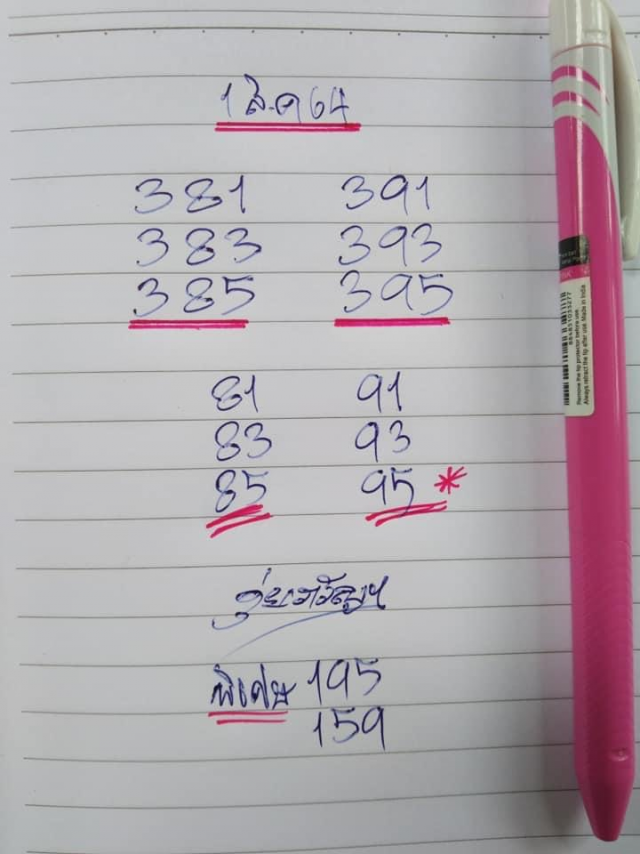 1 ส.ค 64
381 391
383 393
385 395
81 91
83 93
85 95 *
พิเศษ 195
159
Remove the tip protector before use.
Always retract the tip after use. Made in India